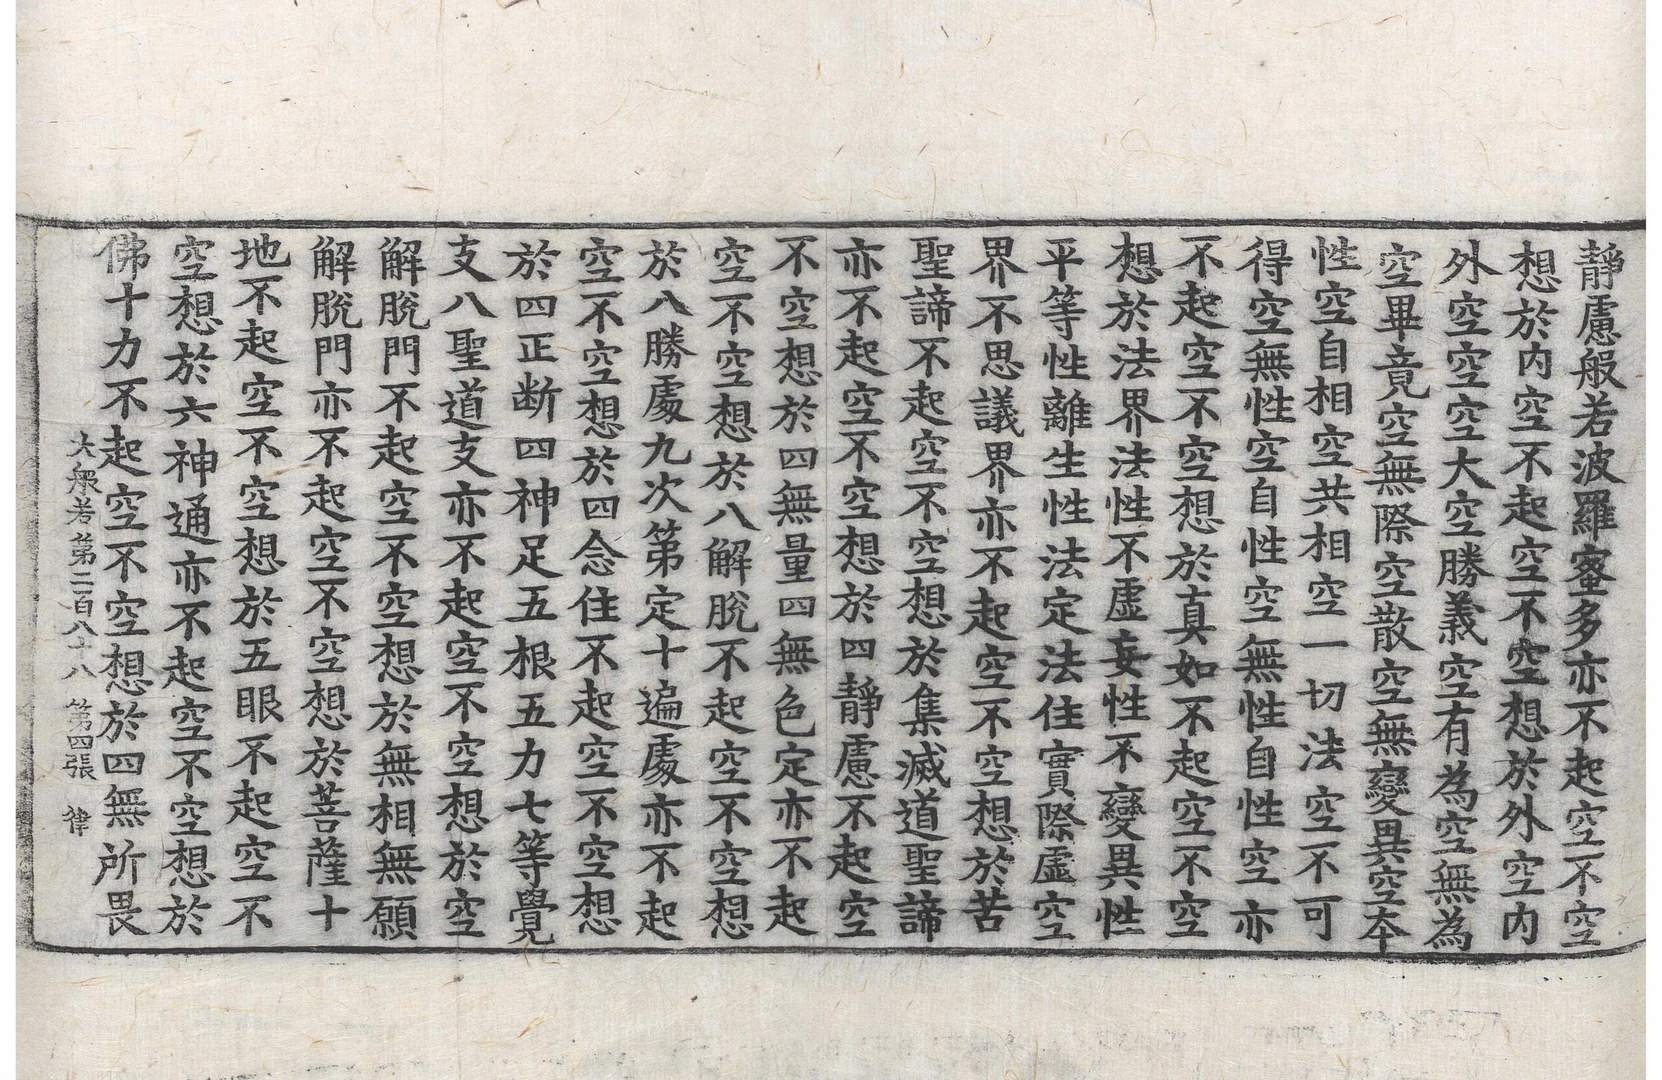 靜慮般若波羅蜜多亦不起空不空
想於内空不起空不空想於外空内
外空空空大空勝義空有為空無為
空畢竟空無際空散空無變異空本
性空自相空共相空一切法空不可
得空無性空自性空無性自性空亦
不起空不空想於真如不起空不空
想於法界法性不虛妄性不變異性
平等性離生性法定法住實際虛空
界不思議界亦不起空不空想於苦
聖諦不起空不空想於集滅道聖諦
亦不起空不空想於四靜慮不起空
不空想於四無量四無色定亦不起
空不空想於八解脫不起空不空想
於八勝處九次第定十遍處亦不起
空不空想於四念住不起空不空想
於四正断四神足五根五力七等覺
支八聖道支亦不起空不空想於空
解脫門不起空不空想於無相無願
解脫門亦不起空不空想於菩薩十
地不起空不空想於五眼不起空不
空想於六神通亦不起空不空想於
佛十力不起空不空想於四無所畏
大般若第二百八十八 第四張 律